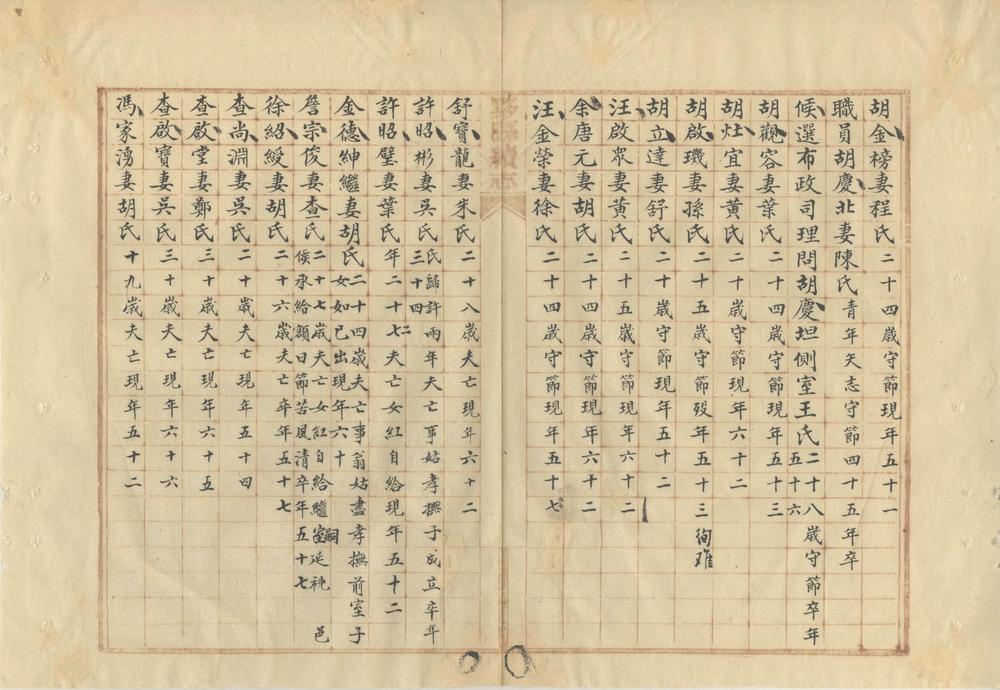 胡金榜妻程氏二十四歲守節現年五十一
職員胡慶北妻陳氏青年矢志守節四十五年卒
候選布政司理問胡慶坦側室王氏二十八歲守節卒年五十六
胡觀容妻葉氏二十四歲守節現年五十三
胡灶宜妻黃氏二十歲守節現年六十二
胡啟璣妻孫氏二十五歲守節歿年五十三徇难
胡立達妻舒氏二十歲守節現年五十二
汪啟眾妻黃氏二十五歲守節現年六十二
余唐元妻胡氏二十四歲守節現年六十二
汪金榮妻徐氏二十四歲守節現年五十七
舒寶龍妻朱氏二十八歲夫亡現年六十二
許昭彬妻吳氏氏歸許兩年夫亡事姑孝撫子成立卒年三十四
許昭壁妻葉氏年二十七二夫亡女紅自給現年五十二
金德紳繼妻胡氏二十四歲夫亡事翁姑盡孝撫前室子女如己出現年六十
詹宗俊妻查氏二十七歲夫亡女紅自給繼室嗣延祧邑侯承給額曰節苦風清卒年五十七
徐紹綬妻胡氏二十六歲夫亡卒年五十七
查尚淵妻吳氏二十歲夫亡現年五十四
查啟堂妻鄭氏三十歲夫亡現年六十五
查啟寶妻吳氏三十歲夫亡現年六十六
馮家湧妻胡氏十九歲夫亡現年五十二